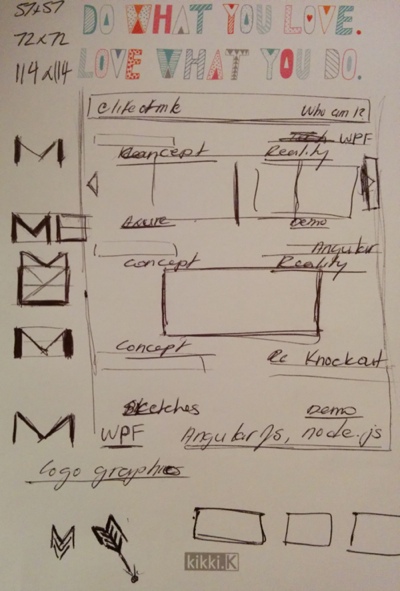 57x57
DO WHAT YOU LOVE.
72x72
LOVE WHAT YOU DO.
114x114
@lifeofmk Who am I?
WPF
Concept Reality
Azure Demo
Angular
Concept Reality
Concept Knockout
Sketches Demo
WPF AngularJs, node.js
Logo graphics
kikki.K